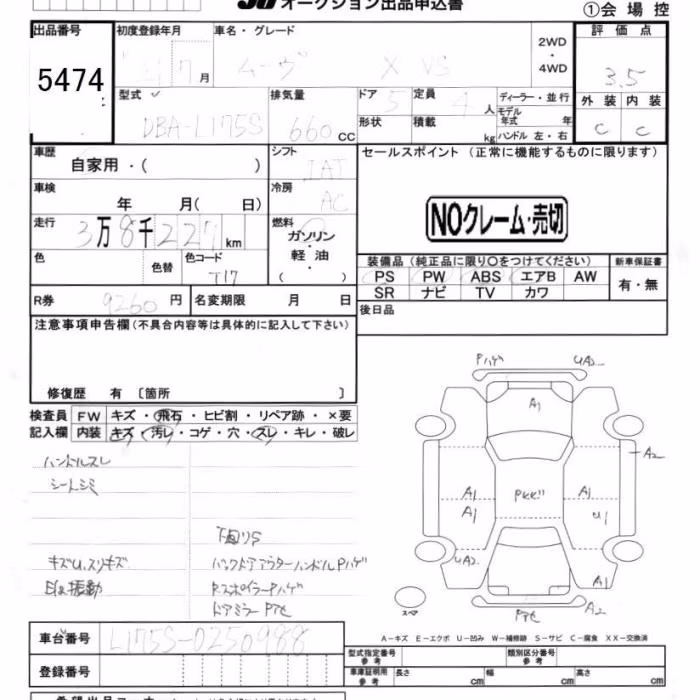 オークション出品申込書
①会場控
出品番号
5474
初度登録年月
7月
車名・グレード
ムーヴ X VS
2WD
・
4WD
評価点
3.5
型式
DBA-L175S
排気量
660 CC
ドア 5
定員 4人
ディーラー・並行
モデル年式 年
形状
積載 kg
ハンドル 左・右
外装 内装
C C
車歴
自家用・( )
シフト
IAT
セールスポイント (正常に機能するものに限ります)
車検
年 月( 日)
冷房
AC
NOクレーム・売切
走行
3万8千227km
燃料
ガソリン
軽油
( )
色
色替
色コード
T17
装備品 (純正品に限り〇をつけてください)
新車保証書
PS PW ABS エアB AW
有・無
SR ナビ TV カワ
R券
9260円
名変期限 月 日
後日品
注意事項申告欄(不具合内容等は具体的に記入して下さい)
修復歴 有 〔箇所 〕
検査員 FW キズ・飛石・ヒビ割・リペア跡・×要
記入欄 内装 キズ・汚レ・コゲ・穴・スレ・キレ・破レ
ハンドルスレ
シートシミ
下回りS
キズU,スリキズ
バックドアアウターハンドルPハゲ
振動
RスポイラーPハゲ
ドアミラーPアセ
Pハゲ
UA2
A1
A2
A1
A1
PKズ!!
A1
U1
UA2
A1
スペア
Pアセ
A2
A−キズ E−エクボ U−凹み W−補修跡 S−サビ C−腐食 XX−交換済
車台番号
L175S-0250988
登録番号
型式指定番号
参考
類別区分番号
参考
車庫証明用
参考
長さ cm
幅 cm
高さ cm